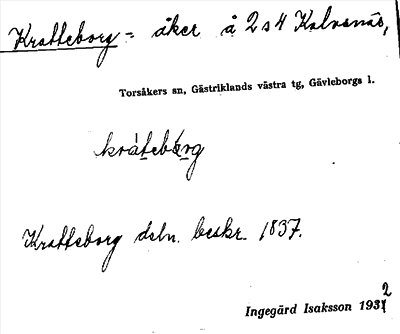 Kratteborg = åker å 2 s 4 Kalvsnäs,
Torsåkers sn, Gästriklands västra tg, Gävleborgs l.
kràtebórg
Kratteborg dsln. beskr. 1837.
Ingegärd Isaksson 1932